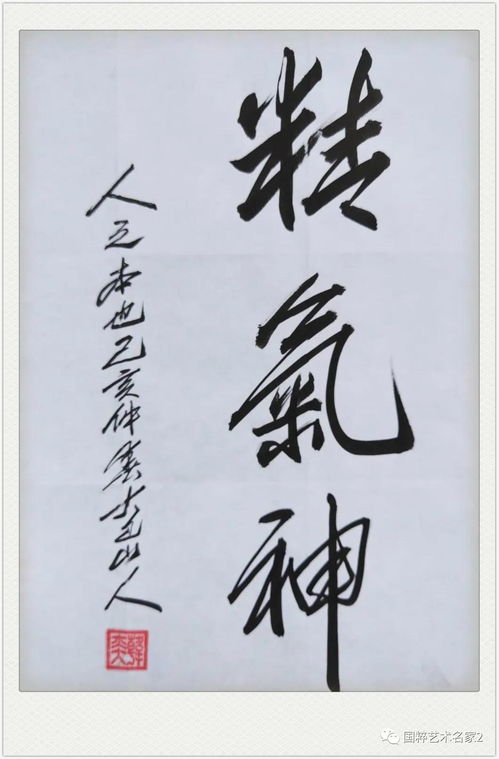 精氣神
人之本也己亥仲春大石山人
国粹艺术名家2